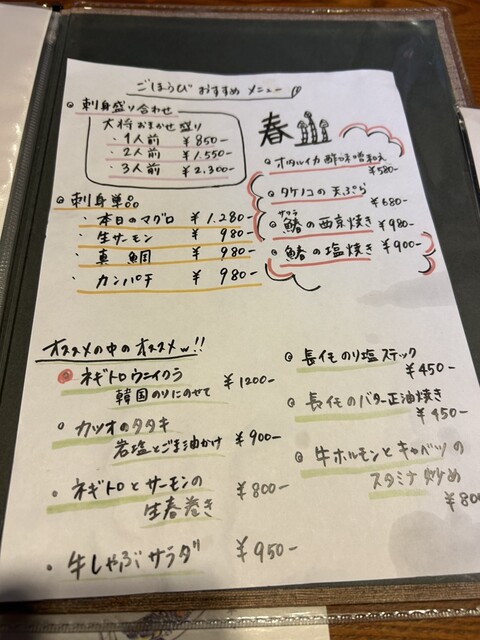 ごほうび おすすめ メニュー
刺身盛り合わせ
大将おまかせ盛り
・1人前 ¥850-
・2人前 ¥1.550-
・3人前 ¥2.300-
刺身単品
・本日のマグロ ¥1.280-
・生サーモン ¥980-
・真鯛 ¥980-
・カンパチ ¥980-
春
ホタルイカ酢味噌和え
¥580-
タケノコの天ぷら
¥680-
サワラ
鰆の西京焼き ¥980-
鰆の塩焼き ¥900-
オススメの中のオススメw!!
ネギトロウニイクラ
韓国のりにのせて ¥1200-
カツオのタタキ
岩塩とごま油かけ ¥900-
ネギトロとサーモンの
生春巻き ¥800-
牛しゃぶサラダ ¥950-
長イモのり塩スティック
¥450-
長イモのバター正油焼き
¥450-
牛ホルモンとキャベツの
スタミナ炒め
¥800